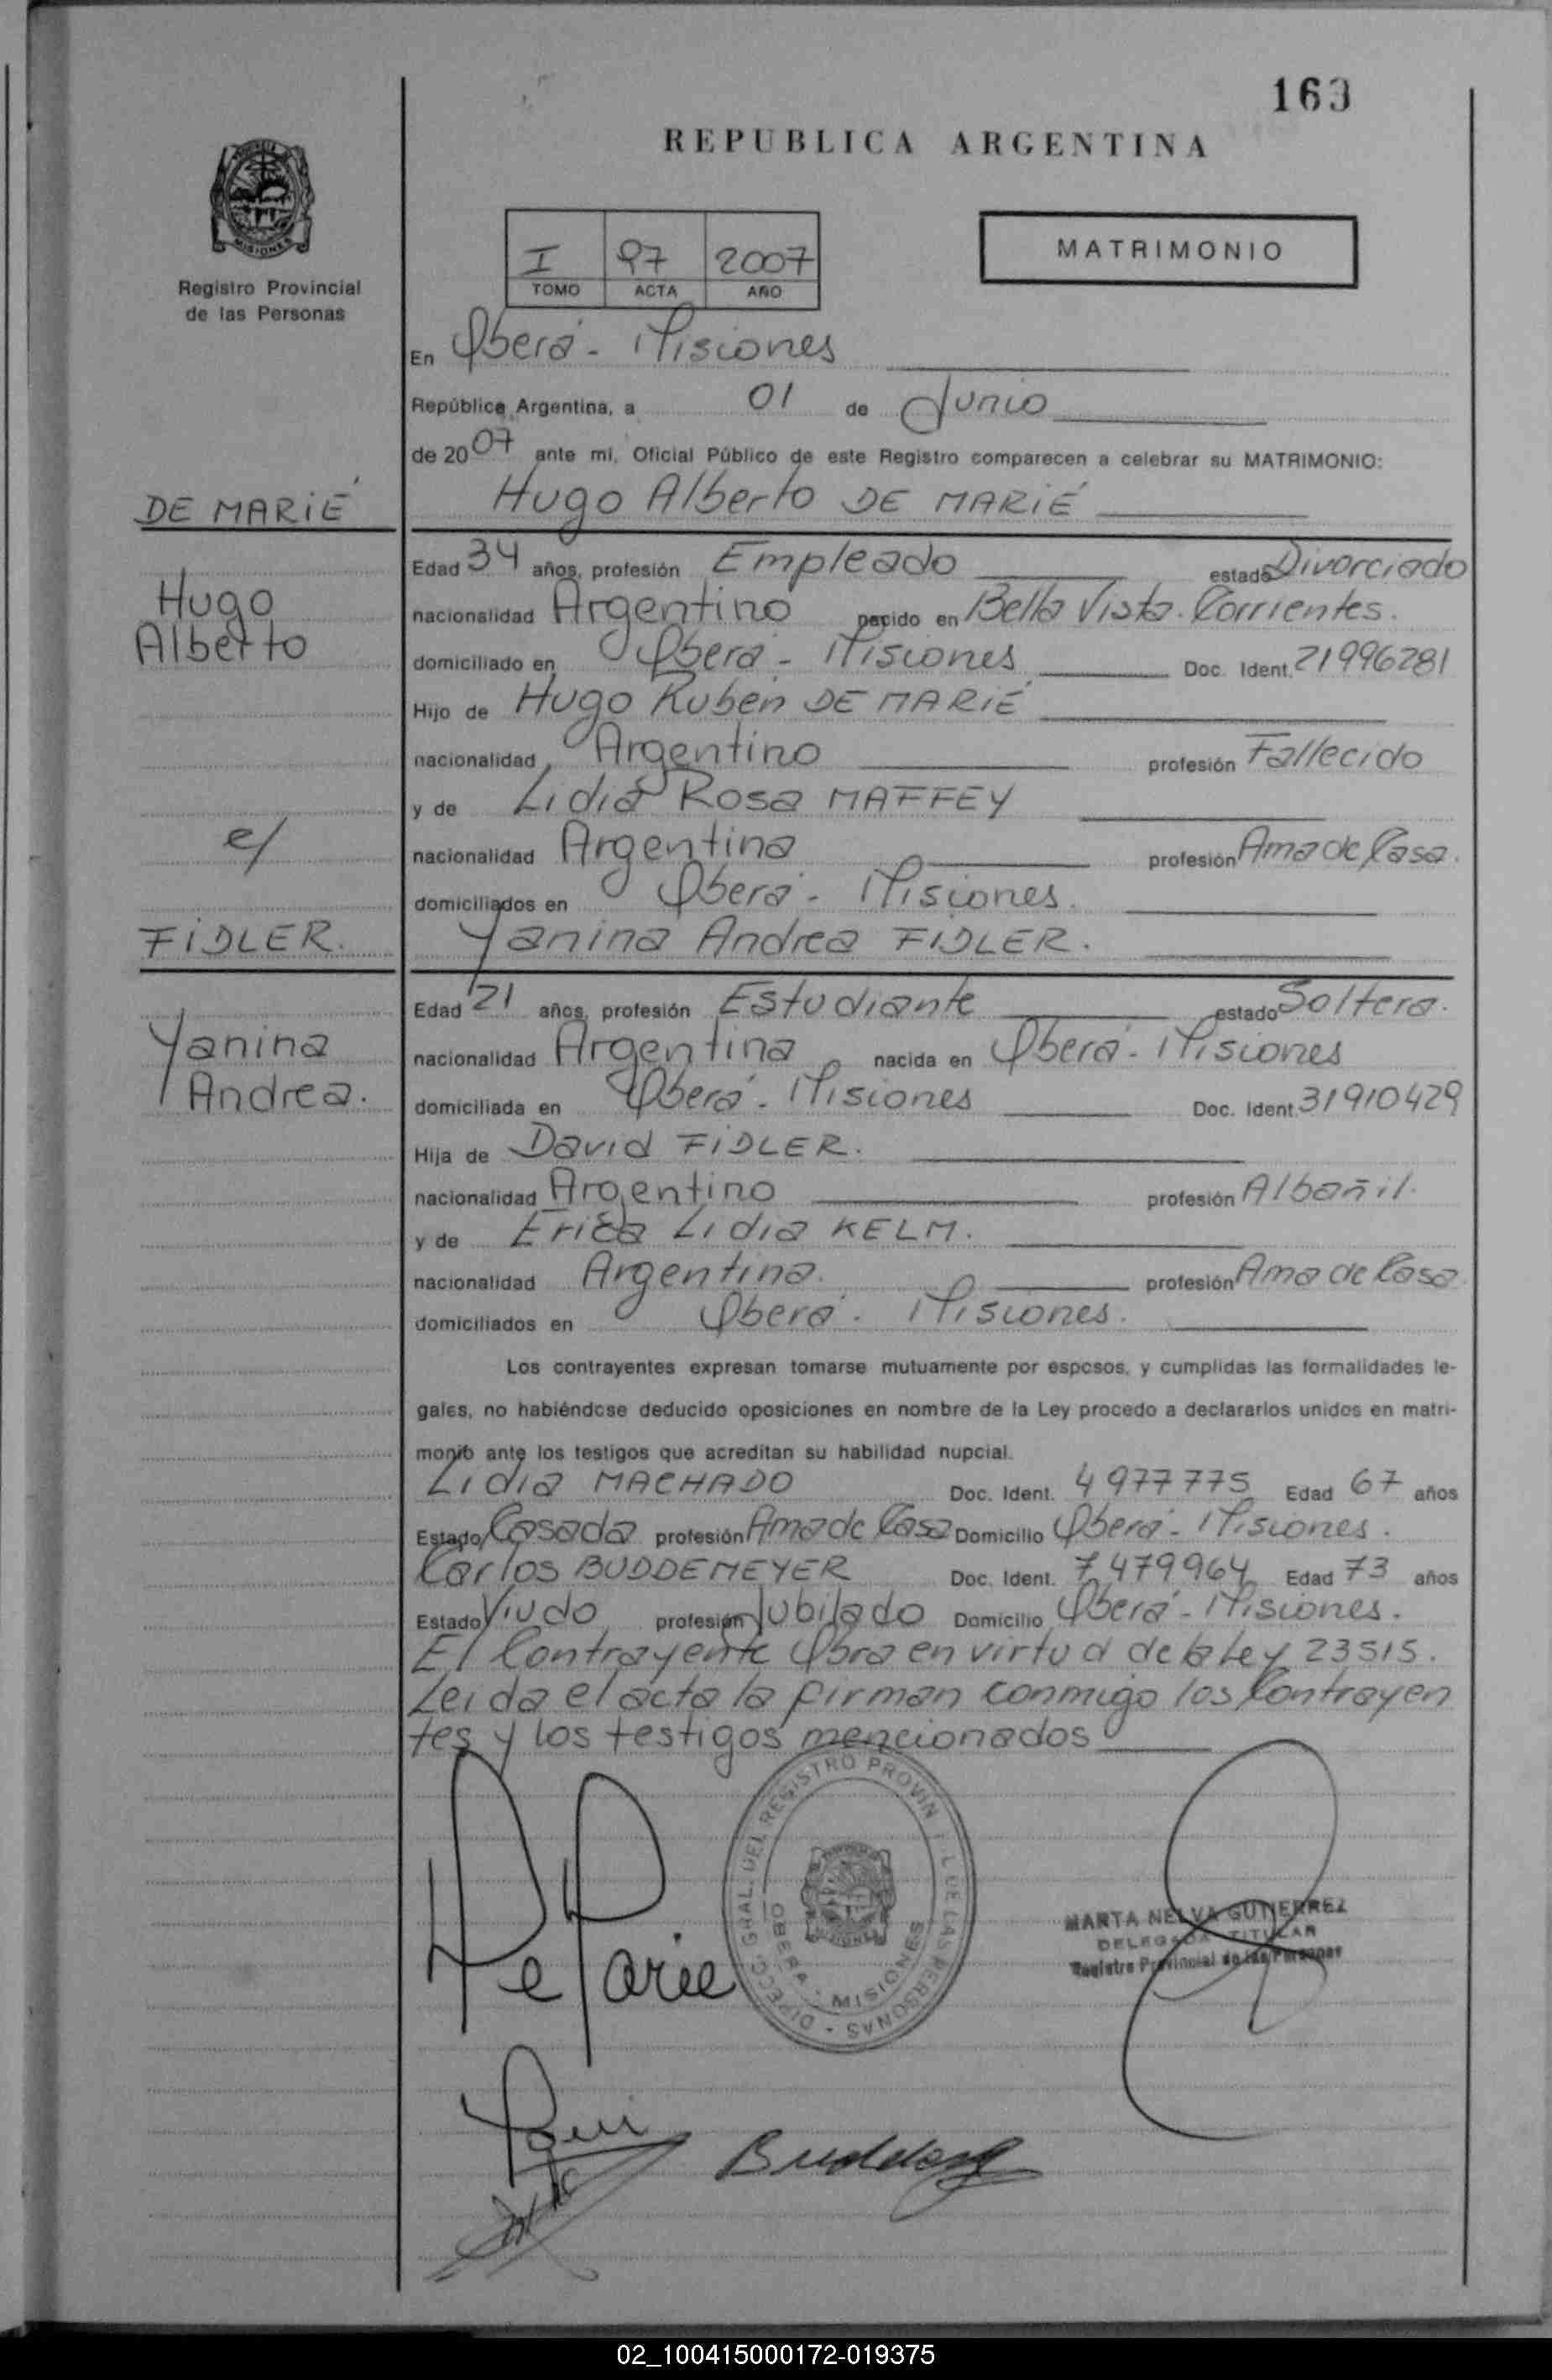 163
REPUBLICA ARGENTINA
MISIONES
Registro Provincial
de las Personas
I 97 2007
TOMO ACTA AÑO
MATRIMONIO
En Oberá - Misiones
República Argentina, a 01 de Junio
de 2007 ante mi, Oficial Público de este Registro comparecen a celebrar su MATRIMONIO:
DE MARIÉ
Hugo Alberto DE MARIÉ
Hugo
Alberto
Edad 34 años, profesión Empleado estado Divorciado
nacionalidad Argentino nacido en Bella Vista. Corrientes.
domiciliado en Oberá - Misiones Doc. Ident. 21996281
Hijo de Hugo Rubén DE MARIÉ
nacionalidad Argentino profesión Fallecido
y de Lidia Rosa MAFFEY
e/
nacionalidad Argentina profesión Ama de Casa.
domiciliados en Oberá - Misiones.
FIDLER.
Yanina Andrea FIDLER.
Yanina
Andrea.
Edad 21 años, profesión Estudiante estado Soltera.
nacionalidad Argentina nacida en Oberá - Misiones
domiciliada en Oberá - Misiones Doc. Ident. 31910429
Hija de David FIDLER.
nacionalidad Argentino profesión Albañil.
y de Lidia KELM.
nacionalidad Argentina. profesión Ama de Casa
domiciliados en Oberá - Misiones.
Los contrayentes expresan tomarse mutuamente por esposos, y cumplidas las formalidades le-
gales, no habiéndose deducido oposiciones en nombre de la Ley procedo a declararlos unidos en matri-
monio ante los testigos que acreditan su habilidad nupcial.
Lidia MACHADO Doc. Ident. 4977775 Edad 67 años
Estado Casada profesión Ama de Casa Domicilio Oberá - Misiones.
Carlos BUDDEMEYER Doc. Ident. 7479964 Edad 73 años
Estado Viudo profesión Jubilado Domicilio Oberá - Misiones.
El Contrayente Obra en virtud de la Ley 23515.
Leida el acta la firman conmigo los Contrayen
tes y los testigos mencionados
De Marie
DIRECC. GRAL. DEL REGISTRO PROVIN DE LAS PERSONAS -
OBERA - MISIONES
MARTA NELVA GUTIERREZ
DELEGADA TITULAR
Registro Provincial de las Personas
02_100415000172-019375